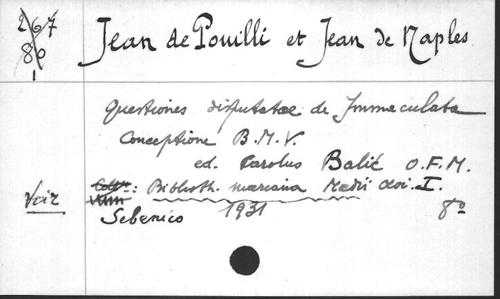 267
80
1
Jean de Pouilli et Jean de Naples
Questiones disputatae de Immaculata
Conceptione B.M.V.
ed. Carolus Balić O.F.M.
Voir : Biblioth. mariana Medii aevi. I.
Sebenico 1931 8º